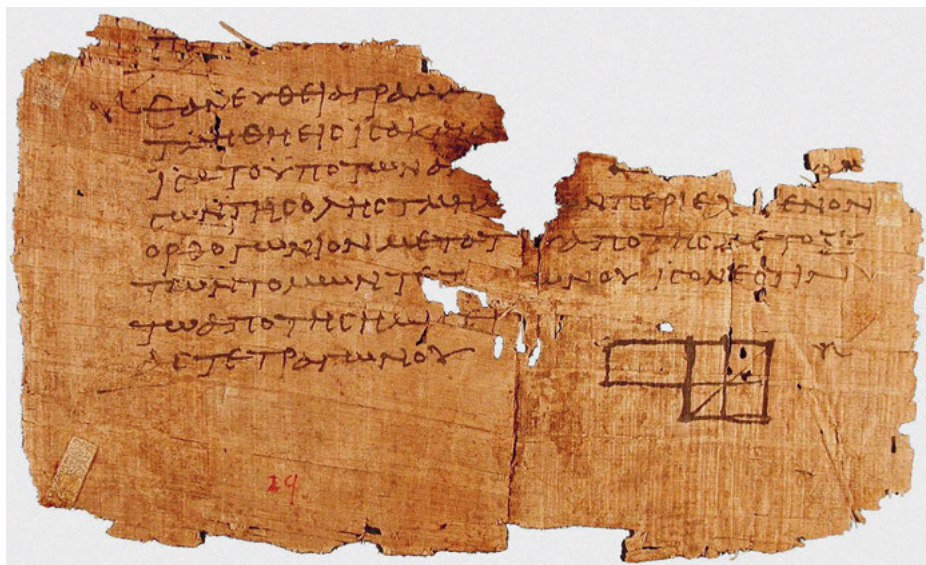 ΕΑΝΕΥΘΕΙΑΓΡΑΜΜ
ΤΜΗΘΗΕΙΣΙΣΑΚΑΙΑ
ΙΣΑΤΟΥΠΟΤΩΝΑ
ΣΩΝΤΗΣΟΛΗΣΤΜΗΜ ΩΝΠΕΡΙΕΧ ΜΕΝΟΝ
ΟΡΘΟΓΩΝΙΟΝΜΕΤΟΤ ΑΠΟΤΗΣΜΕΤΟΞΥ
ΤΩΝΤΟΜΩΝΤΕΤ ΩΝΟΥΙΣΟΝΕΣΤΙΝ
ΤΩΑΠΟΤΗΣΗΜΙΣΕΙ
ΑΣΤΕΤΡΑΓΩΝΟΥ
29